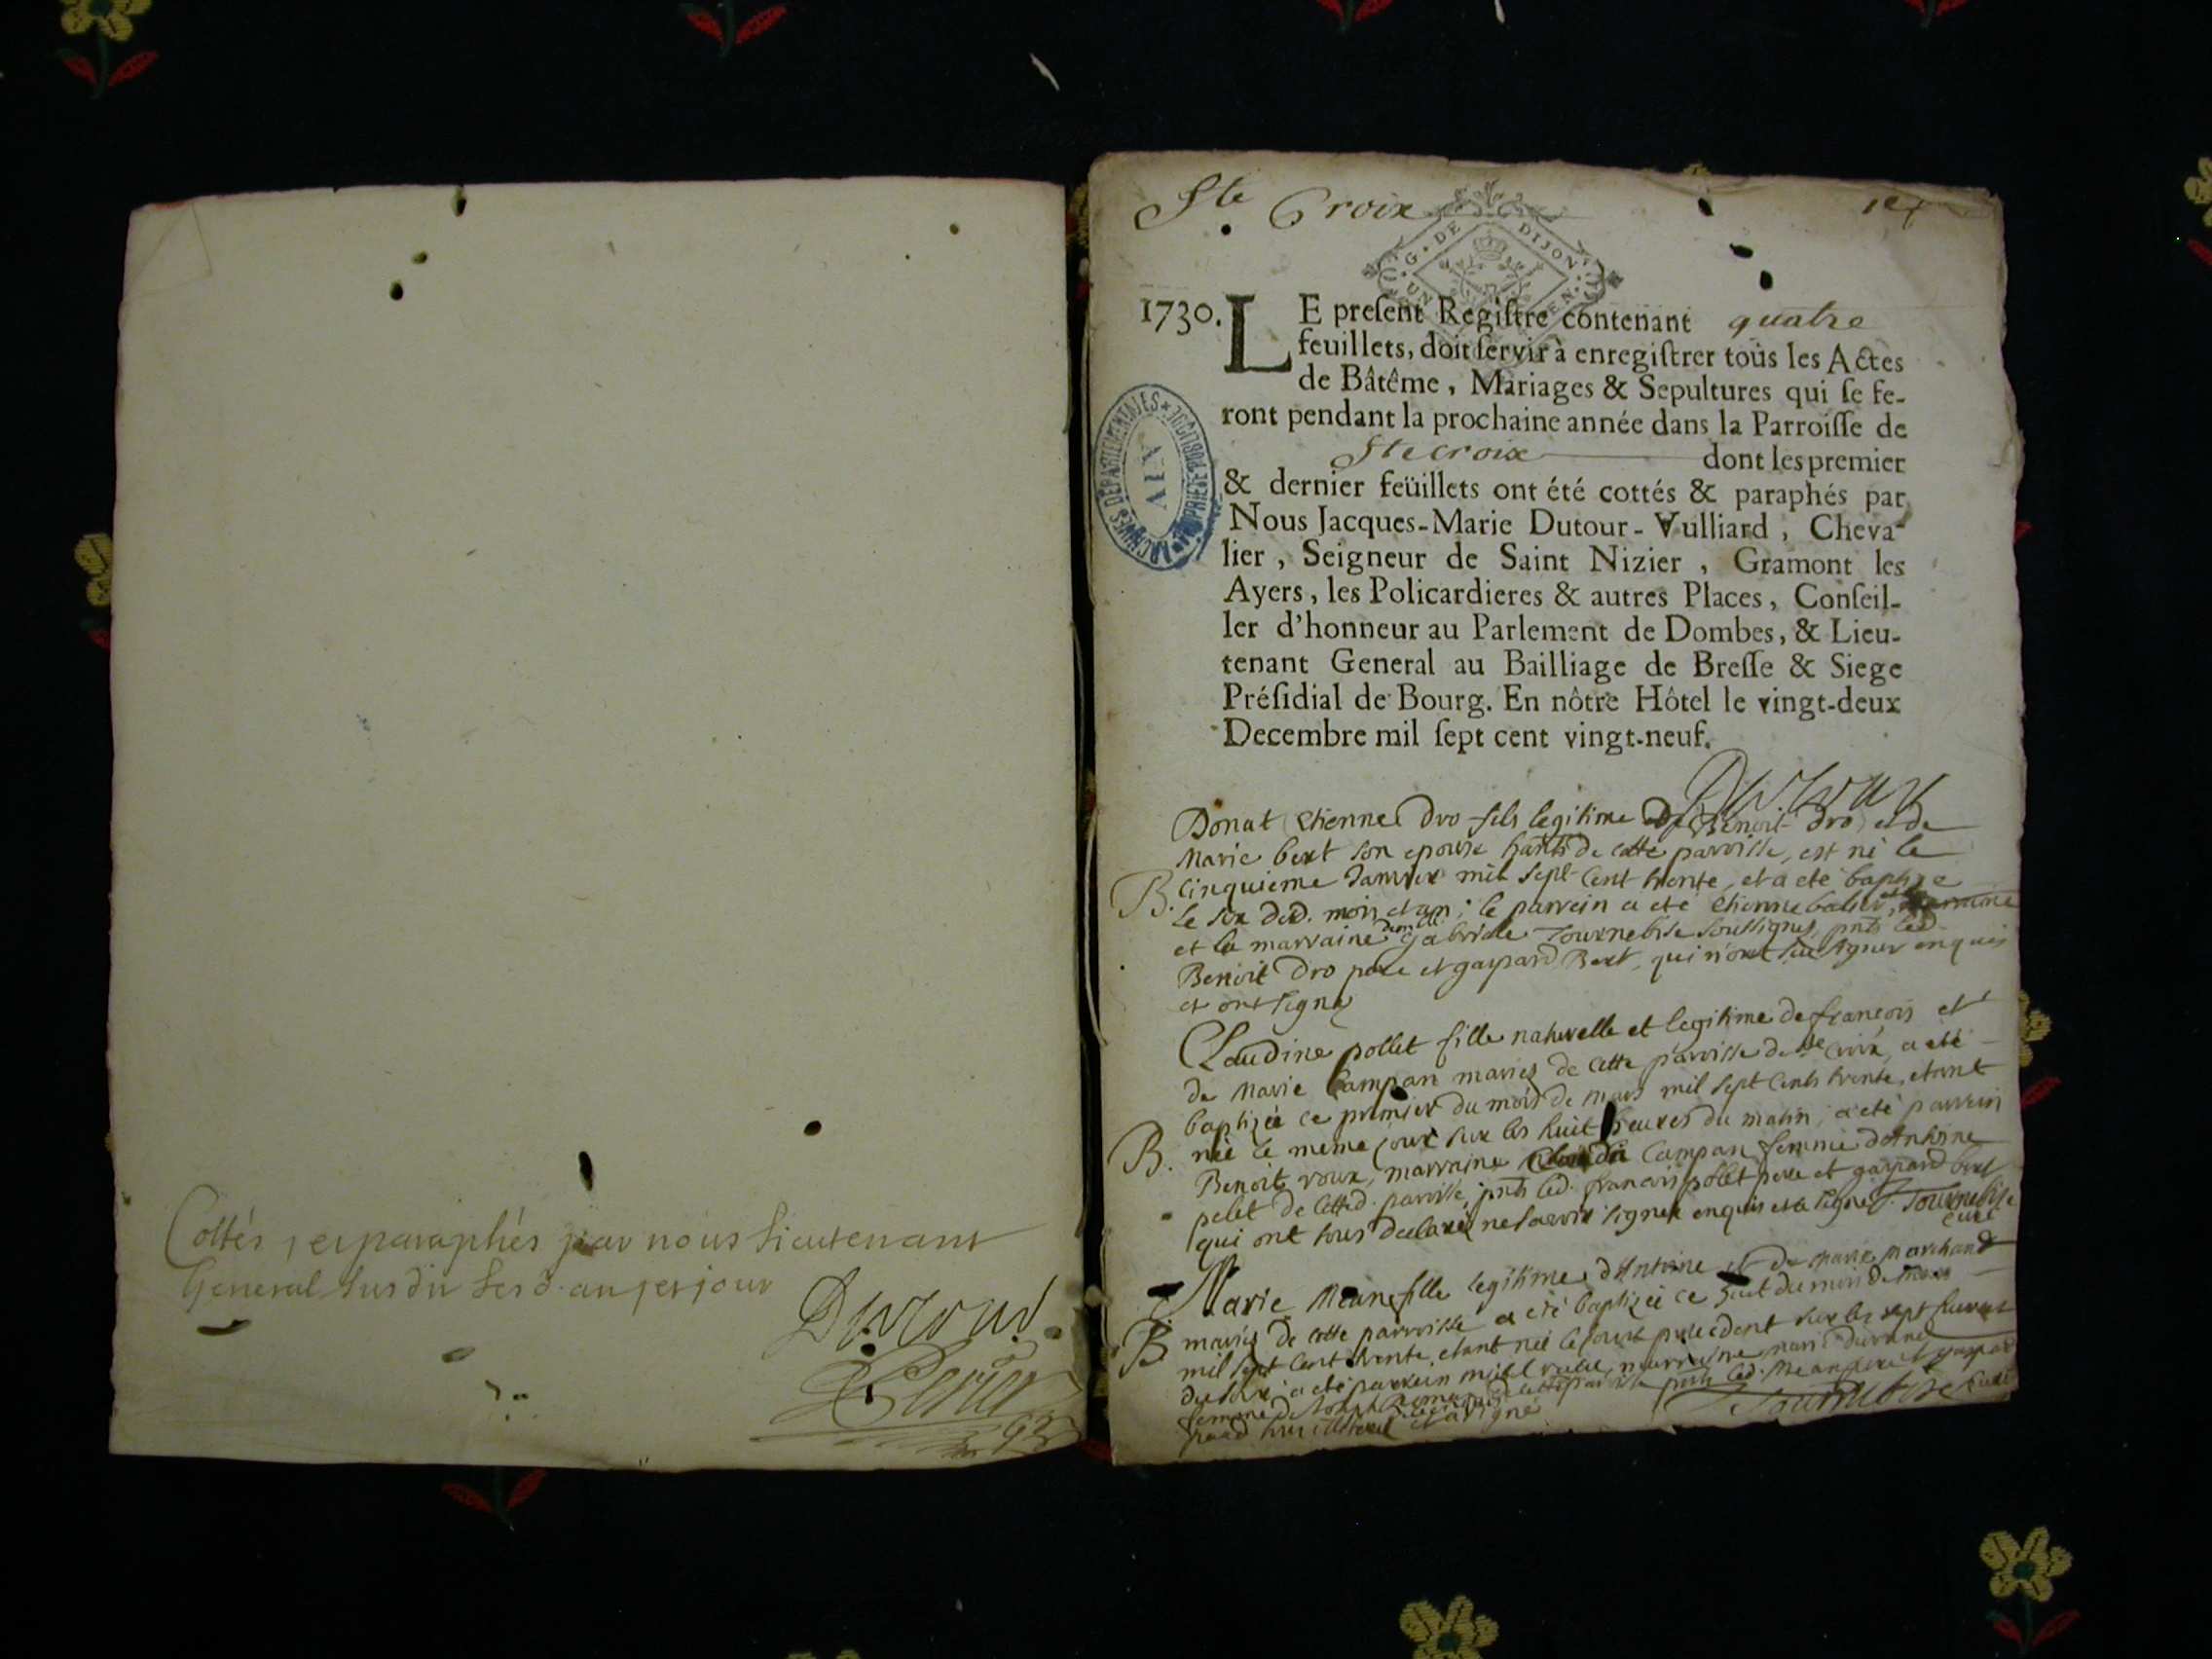 Cottés, et paraphés par nous Lieutenant
General susdit les d. an et jour
Dutour
Ste Croix
1er
G. DE DIJON
1730. LE preſent Regiſtre contenant quatre
feuillets, doit ſervir à enregiſtrer tous les Actes
de Bâtême, Mariages & Sepultures qui ſe fe-
ront pendant la prochaine année dans la Parroiſſe de
Ste croix dont les premier
& dernier feüillets ont été cottés & paraphés par
Nous Jacques-Marie Dutour-Vulliard, Cheva-
lier, Seigneur de Saint Nizier, Gramont les
Ayers, les Policardieres & autres Places, Conſeil-
ler d'honneur au Parlement de Dombes, & Lieu-
tenant General au Bailliage de Breſſe & Siege
Préſidial de Bourg. En nôtre Hôtel le vingt-deux
Decembre mil ſept cent vingt-neuf.
ARCHIVES DÉPARTEMENTALES * PROPRIÉTÉ PUBLIQUE *
AIN
Dutour
Donat Etienne Dro fils legitime de Benoit Dro et de
Marie bert son epouse habts de cette parroisse, est né le
B. cinquieme Janvier mil sept cent trente, et a eté baptize
le six dud. mois et an; le parrein a eté etienne
et la marraine demlle Gabrielle Tournebise soussignés, pnts led.
Benoit Dro pere et gaspard Bert, qui n'ont sceu signer enquis
et ont signé
Claudine pollet fille naturelle et legitime de françois et
de Marie Campan mariés de cette parroisse de Ste Croix, a eté
baptizée ce premier du mois de mars mil sept cents trente, etant
B. née le meme jour sur les huit heures du matin, a eté parrein
Benoit roux, marraine Campan femme d'Antoine
pelet de cetted. parroisse, pnts led. françois pollet pere et gaspard bert
qui ont tous declaré ne sçavoir signer enquis et a signé J. Tournebise
curé
Marie Mean fille legitime d'Antoine et de Marie Marchand
B mariés de cette parroisse a eté baptizée ce huit du mois de mars
mil sept cent trente, etant née le jour precedent sur les sept heures
du soir; a eté parrein marraine
femme de pnts led. Mean pere et gaspard
et a signé
J Tournebise curé